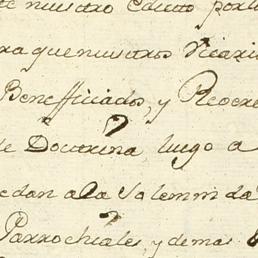 nuestro Edicto por
ra que nuestros Vicari
Beneficiados, y Recto
de Doctrina luego a
edan a la Solemnida
Parrochiales, y demas